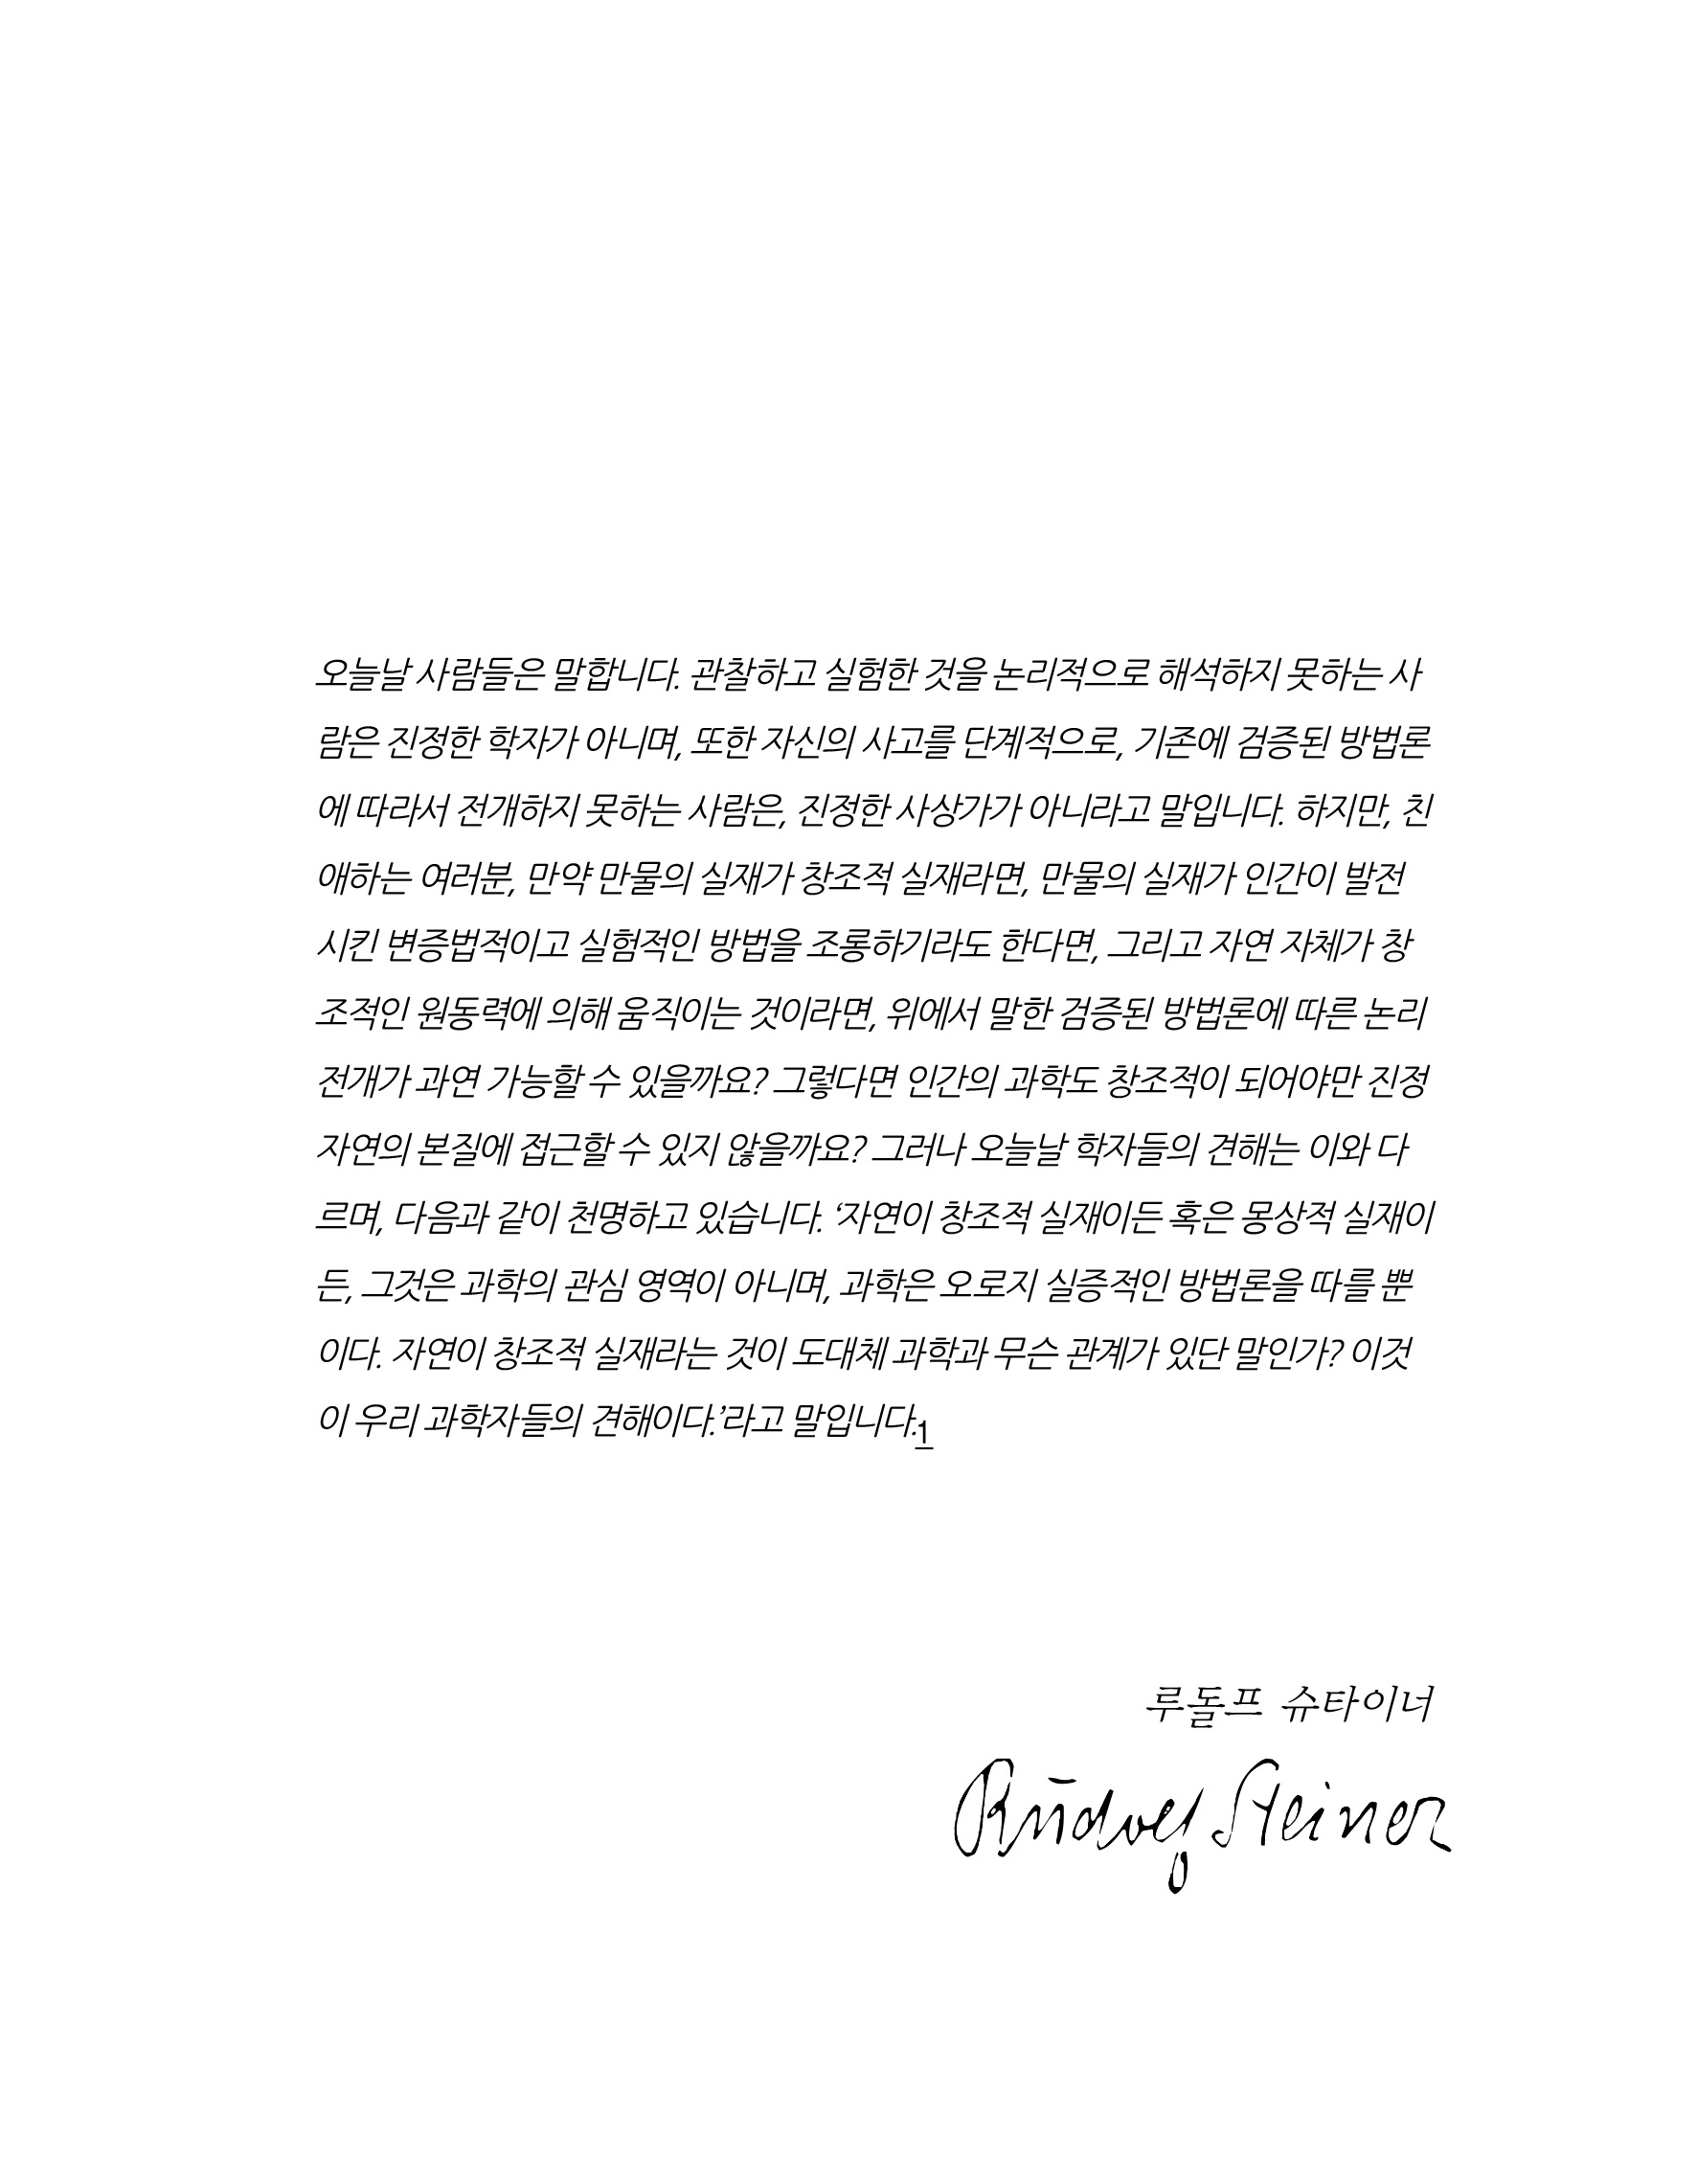 오늘날 사람들은 말합니다. 관찰하고 실험한 것을 논리적으로 해석하지 못하는 사
람은 진정한 학자가 아니며, 또한 자신의 사고를 단계적으로, 기존에 검증된 방법론
에 따라서 전개하지 못하는 사람은, 진정한 사상가가 아니라고 말입니다. 하지만, 친
애하는 여러분, 만약 만물의 실재가 창조적 실재라면, 만물의 실재가 인간이 발전
시킨 변증법적이고 실험적인 방법을 조롱하기라도 한다면, 그리고 자연 자체가 창
조적인 원동력에 의해 움직이는 것이라면, 위에서 말한 검증된 방법론에 따른 논리
전개가 과연 가능할 수 있을까요? 그렇다면 인간의 과학도 창조적이 되어야만 진정
자연의 본질에 접근할 수 있지 않을까요? 그러나 오늘날 학자들의 견해는 이와 다
르며, 다음과 같이 천명하고 있습니다. ‘자연이 창조적 실재이든 혹은 몽상적 실재이
든, 그것은 과학의 관심 영역이 아니며, 과학은 오로지 실증적인 방법론을 따를 뿐
이다. 자연이 창조적 실재라는 것이 도대체 과학과 무슨 관계가 있단 말인가? 이것
이 우리 과학자들의 견해이다.’라고 말입니다.1
루돌프 슈타이너
Rudolf Steiner